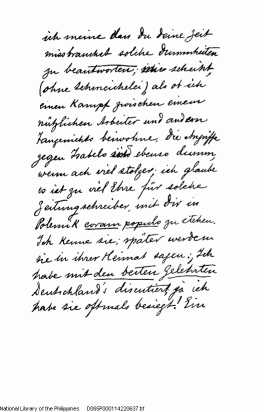 ich meine dass Du deine Zeit
missbrauchst solche Dummheiten
zu beantworten; mir scheint,
(ohne Schmeichelei) als ob ich
einen Kampf zwischen einem
nützlichen Arbeiter und andern
Taugenichts beiwohne. Die Angriffe
gegen Isabelo sind ebenso dumm,
wenn auch viel stolzer; ich glaube
es ist zu viel Ehre für solche
Zeitungschreiber mit dir in
Polemik coram populo zu stehen.
Ich kenne sie; später werden
sie in ihrer Heimat sagen: Ich
habe mit den besten Gelehrten
Deutschland's discutiert, ja ich
habe sie oftmals besiegt! Ein
National Library of the Philippines